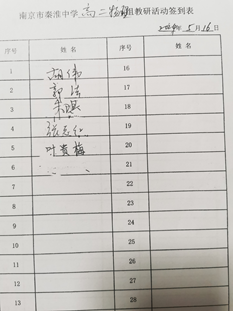 南京市秦淮中学高二物理组教研活动签到表
5月16日
序号 姓名 序号 姓名
1 胡伟 16
2 郭佳 17
3 朱 18
4 张志红 19
5 叶贵梅 20
6 21
7 22
8 23
9 24
10 25
11 26
12 27
13 28